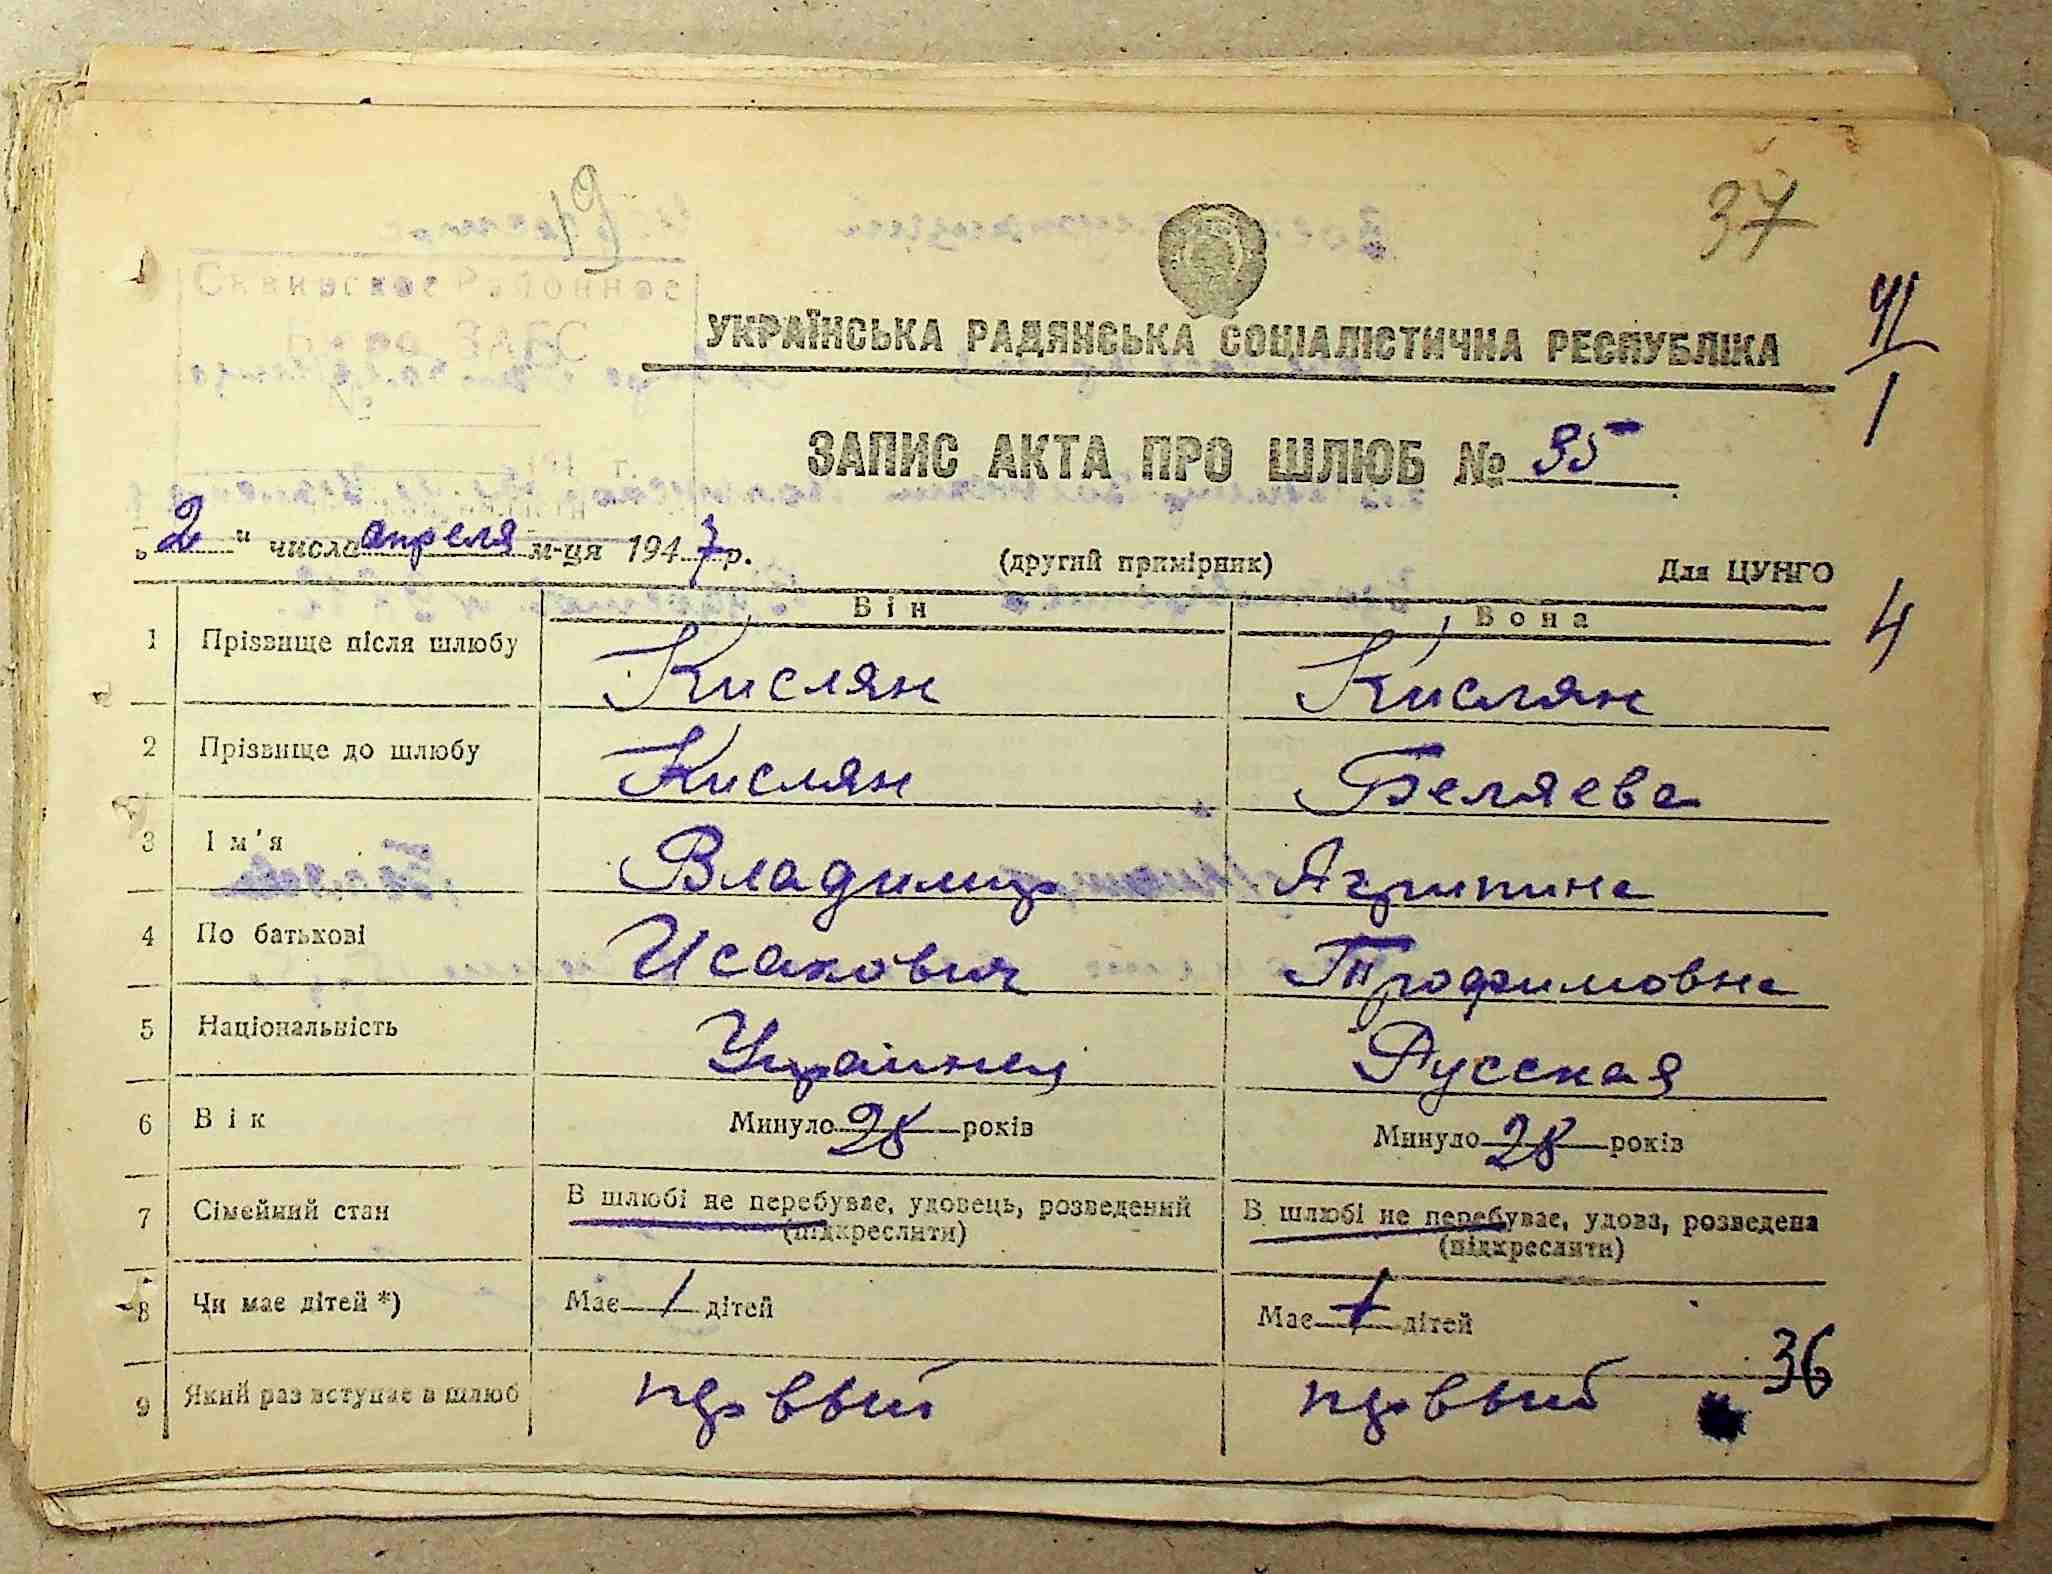 19
37
УКРАЇНСЬКА РАДЯНСЬКА СОЦІАЛІСТИЧНА РЕСПУБЛІКА
ЗАПИС АКТА ПРО ШЛЮБ № 35
„2" числа апреля м-ця 1947 р. (другий примірник) Для ЦУНГО
4
Він Вона
1 Прізвище після шлюбу Кислян Кислян
2 Прізвище до шлюбу Кислян Беляева
3 Ім'я Владимир Агрипина
4 По батькові Исакович Трофимовна
5 Національність Украинец Русская
6 Вік Минуло 28 років Минуло 28 років
7 Сімейний стан В шлюбі не перебуває, удовець, розведений В шлюбі не перебуває, удова, розведена
(підкреслити) (підкреслити)
8 Чи має дітей *) Має / дітей Має дітей
36
9 Який раз вступає в шлюб первый первый